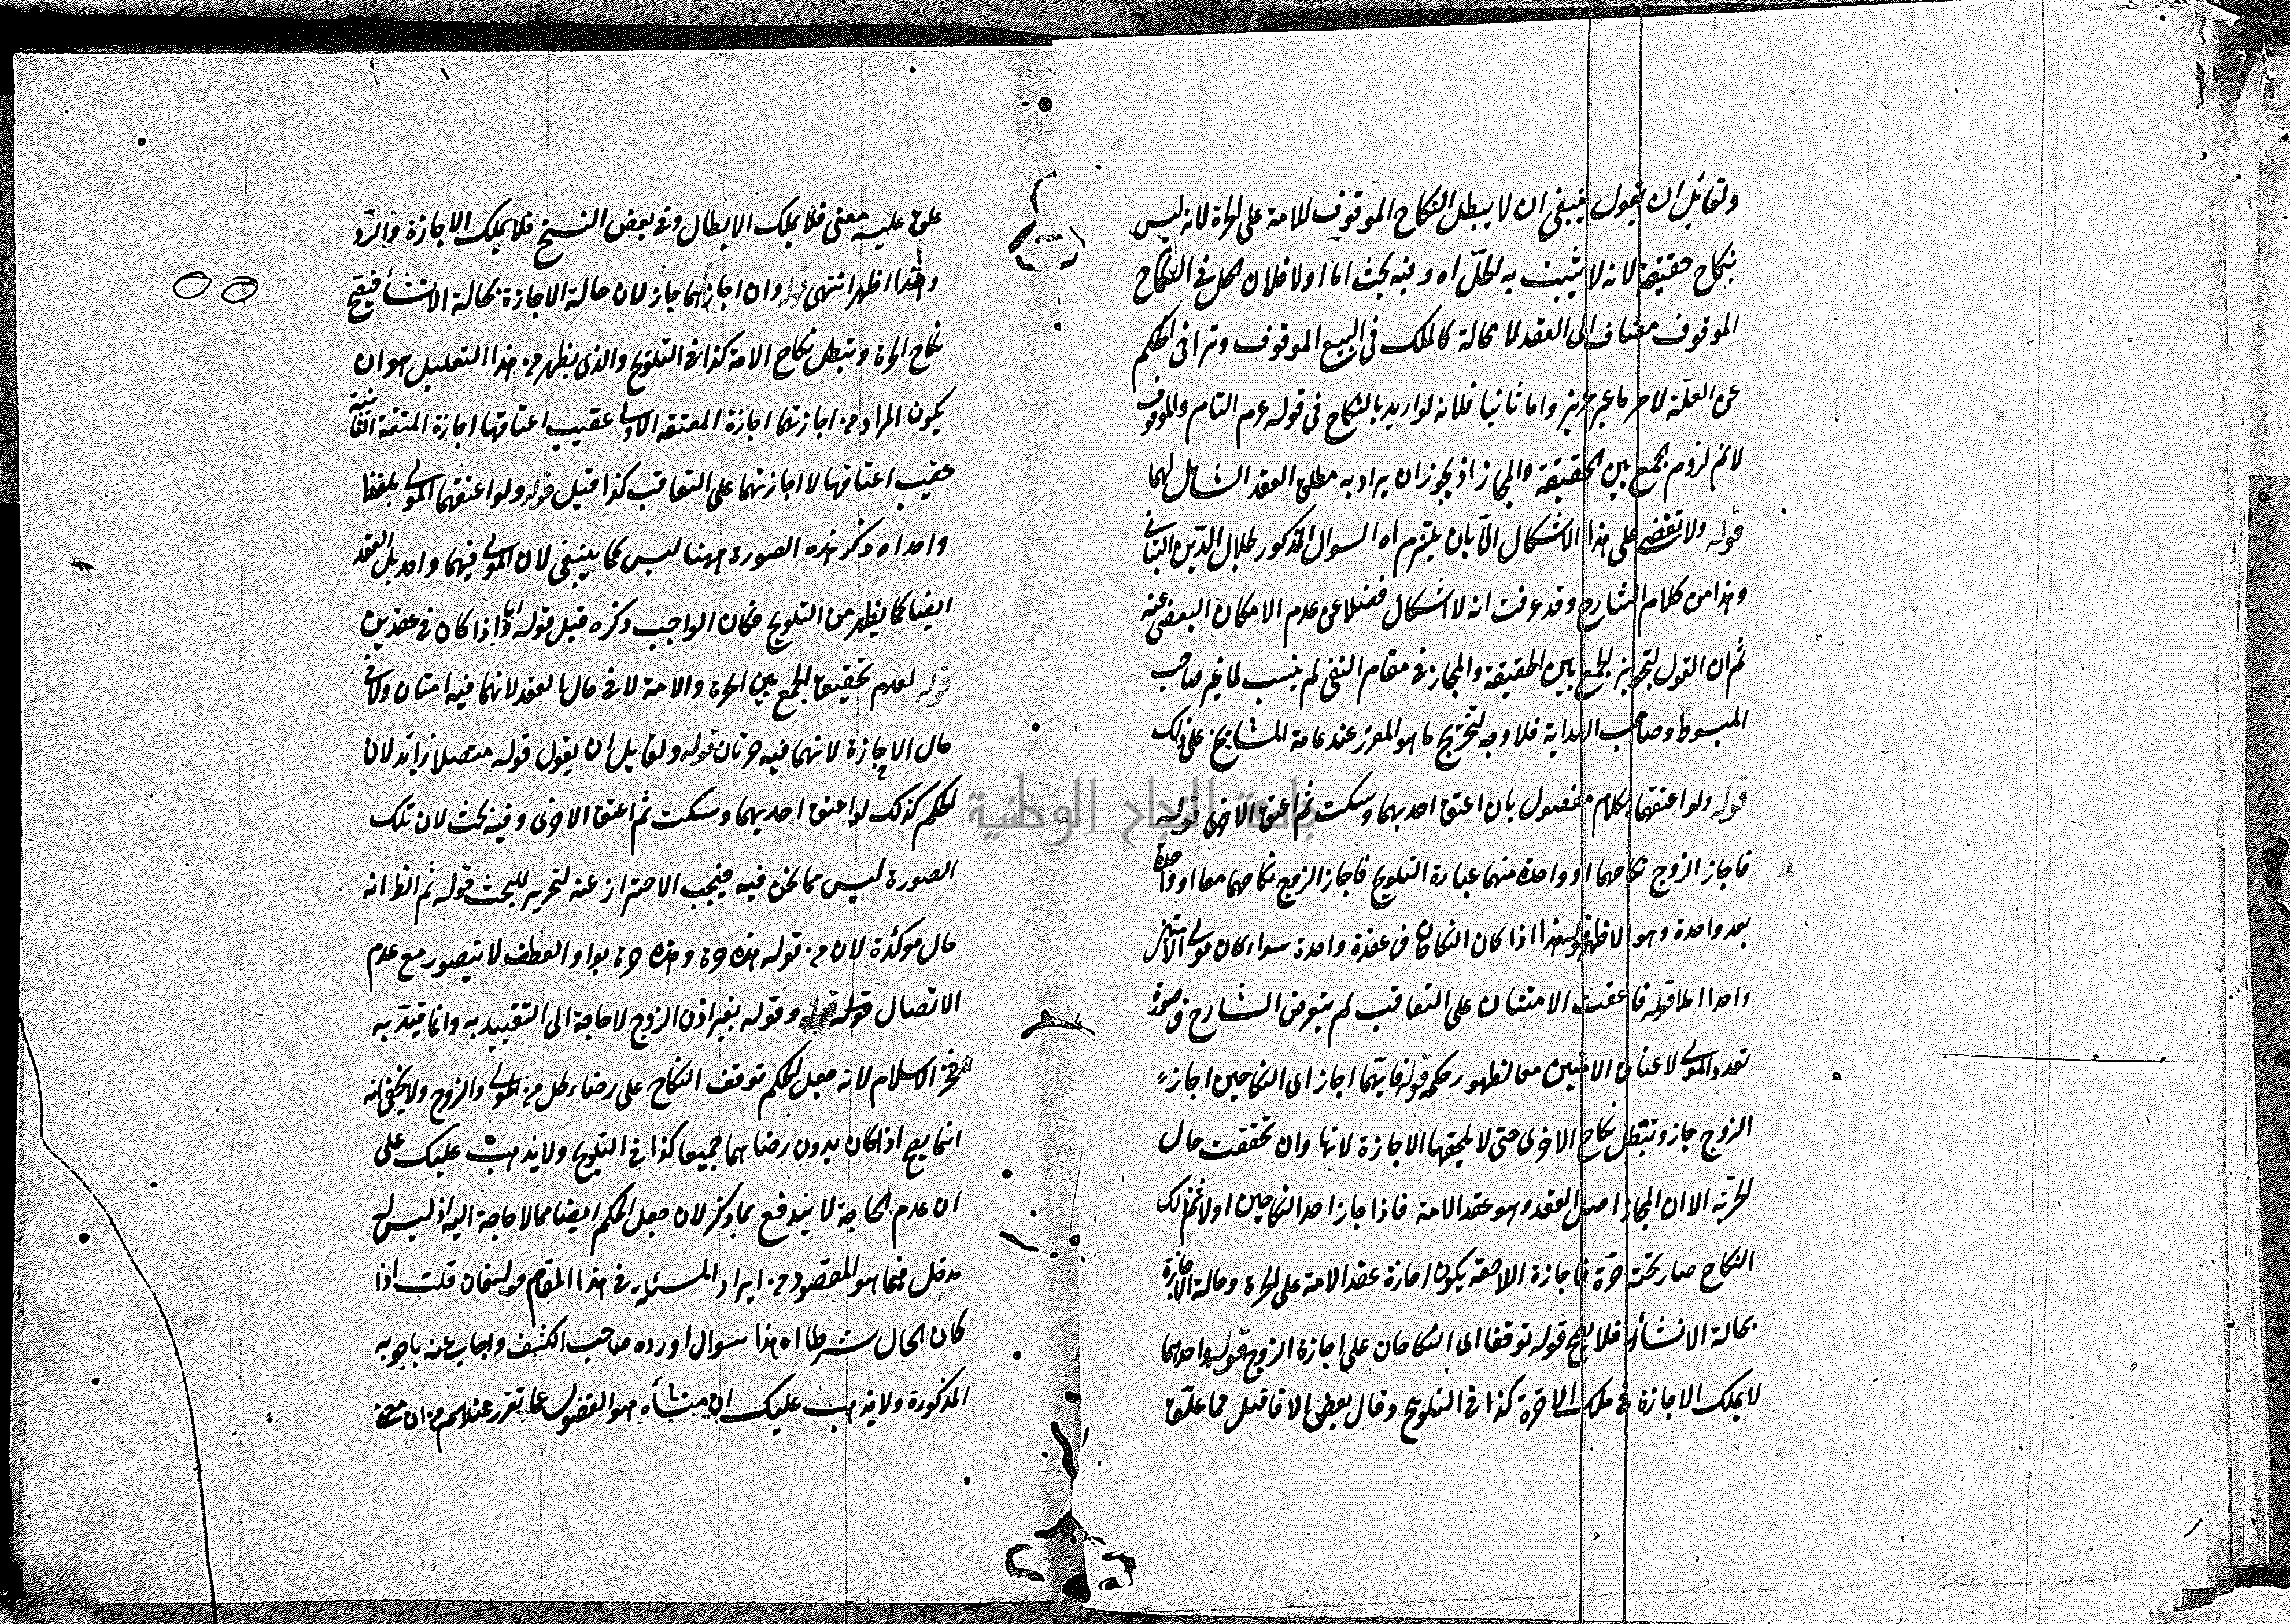 ولقائل ان يقول ينبغى ان لا يبطل النكاح الموقوف للامة على الحرة لانه ليس
بنكاح حقيقة لانه لا يثبت به الحلّ اه وفيه بحث اما اولا فلان الحل فى النكاح
الموقوف مضاف الى العقد لا محالة كالملك فى البيع الموقوف وتراخى الحكم
عن العلّة لامر ما غير عزيز واما ثانيا فلانه لو اريد بالنكاح فى قوله عم التام والموقوف
لا نم لزوم الجمع بين الحقيقة والمجاز اذ يجوز ان يراد به مطلق العقد الشامل لهما
قوله ولا تفصى على هذا الاشكال الاّ بان يلتزم اه السوال المذكور لجلال الدّين التبانى
وهذا من كلام الشارح وقد عرفت انه لا اشكال فضلا عن عدم الامكان التفصى عنه
ثم ان القول بتجويز الجمع بين الحقيقة والمجاز فى مقام النفى لم ينسب لما غير صاحب
المبسوط وصاحب الهداية فلا وجه لتخريج ما هو المعزز عند عامة المشايخ على ذلك
قوله ولو اعتقهما بكلام مفصول بان اعتق احديهما وسكت ثم اعتق الاخرى قوله
فاجاز الزوج نكاحهما او واحدة منهما عبارة التلويح فاجاز الزوج نكاحهما معا او واحدة
بعد واحدة وهو الاظهر قوله هذا اذا كان النكاحان فى عقدة واحدة سواء كان مولى الامتين
واحدا اطلاقه فاعتقت الامتان على التعاقب لم يتعرض الشارح فى صورة
تعدد المولى لاعتاق الامتين معا لظهور حكمه قوله فايّتهما اجاز اى النكاحين اجازه
الزوج جاز وتبطل نكاح الاخرى حتى لا يلحقها الاجازة لانها وان تحققت حال
الحرّية الا ان المجاز اصل العقد وهو عقد الامة فاذا اجاز احد النكاحين اولا فم ذلك
النكاح صار تحته حرّة فاجازة اللاحقة يكون اجازة عقد الامة على الحرة وحالة الاجازة
بحالة الانشأ فلا يصح قوله توقفا اى النكاحان على اجازة الزوج قوله واحدهما
لا يملك الاجازة فى ملك الاخرة كذا فى التلويح وقال بعض الافاضل مما علّق
علق عليه معنى فلا يملك الابطال وفى بعض النسخ فلا يملك الاجازة والردّ
وهذا اظهر انتهى قوله وان اجازهما جاز لان حالة الاجازة بحالة الانشأ فيصح
نكاح الحرة وتبطل نكاح الامة كذا فى التلويح والذى يظهر من هذا التعليل هو ان
يكون المراد من اجازتهما اجازة المعتقة الاولى عقيب اعتاقها اجازة المتعة الثانية
عقيب اعتاقها لا اجازتهما على التعاقب كذا قيل قوله ولو اعتقهما المولى بلفظ
واحد اه ذكر هذه الصورة ههنا ليس كما ينبغى لان المولى فيهما واحد بل العقد
ايضا كما يظهر من التلويح فكان الواجب ذكره قبل قوله اما اذا كان فى عقدين
قوله لعدم تحقيق الجمع بين الحرة والامة لا فى حال العقد لانهما فيه امتان ولا فى
حال الاجازة لانهما فيه حرتان قوله ولقايل ان يقول قوله متصلا زايد لان
الحكم كذلك لو اعتق احديهما وسكت ثم اعتق الاخرى وفيه بحث لان تلك
الصورة ليس مما نحن فيه فيجب الاحتراز عنه لتحرير للبحث قوله ثم الظ انه
حال مؤكدة لان من قوله هذه حرة وهذه حرة بواو العطف لا يتصور مع عدم
الاتصال قوله وقوله بغير اذن الزوج لا حاجة الى التقييد به وانما قيّد به
فخر الاسلام لانه جعل الحكم توقف النكاح على رضاء كل من المولى والزوج ولا يخفى انه
انما يصح اذا كان بدون رضاهما جميعا كذا فى التلويح ولا يذهب عليك على
ان عدم الحاجة لا يندفع بما ذكر لان جعل الحكم ايضا مما لا حاجة اليه اذ ليس له
مدخل فيما هو المقصود من ايراد المسئلة فى هذا المقام قوله فان قلت اذا
كان الحال شرطا اه هذا سوال اورده صاحب الكشف واجاب عنه باجوبه
المذكورة ولا يذهب عليك ان منشأه هو الفضول عما تقرر عندهم من ان